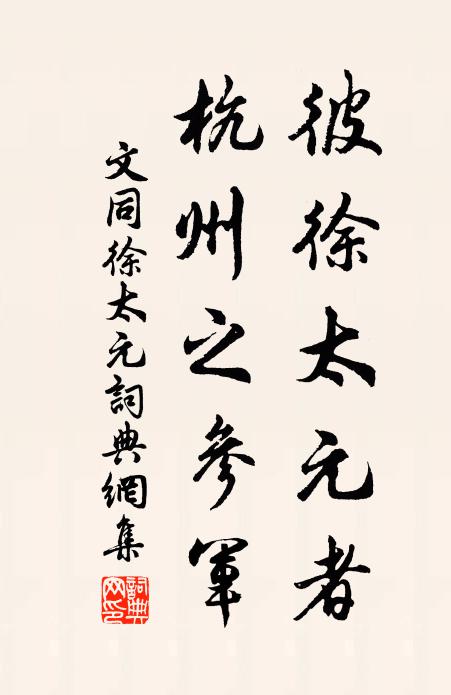 彼徐太元者
杭州之參軍
文同徐太元詞典網集
詞典網印